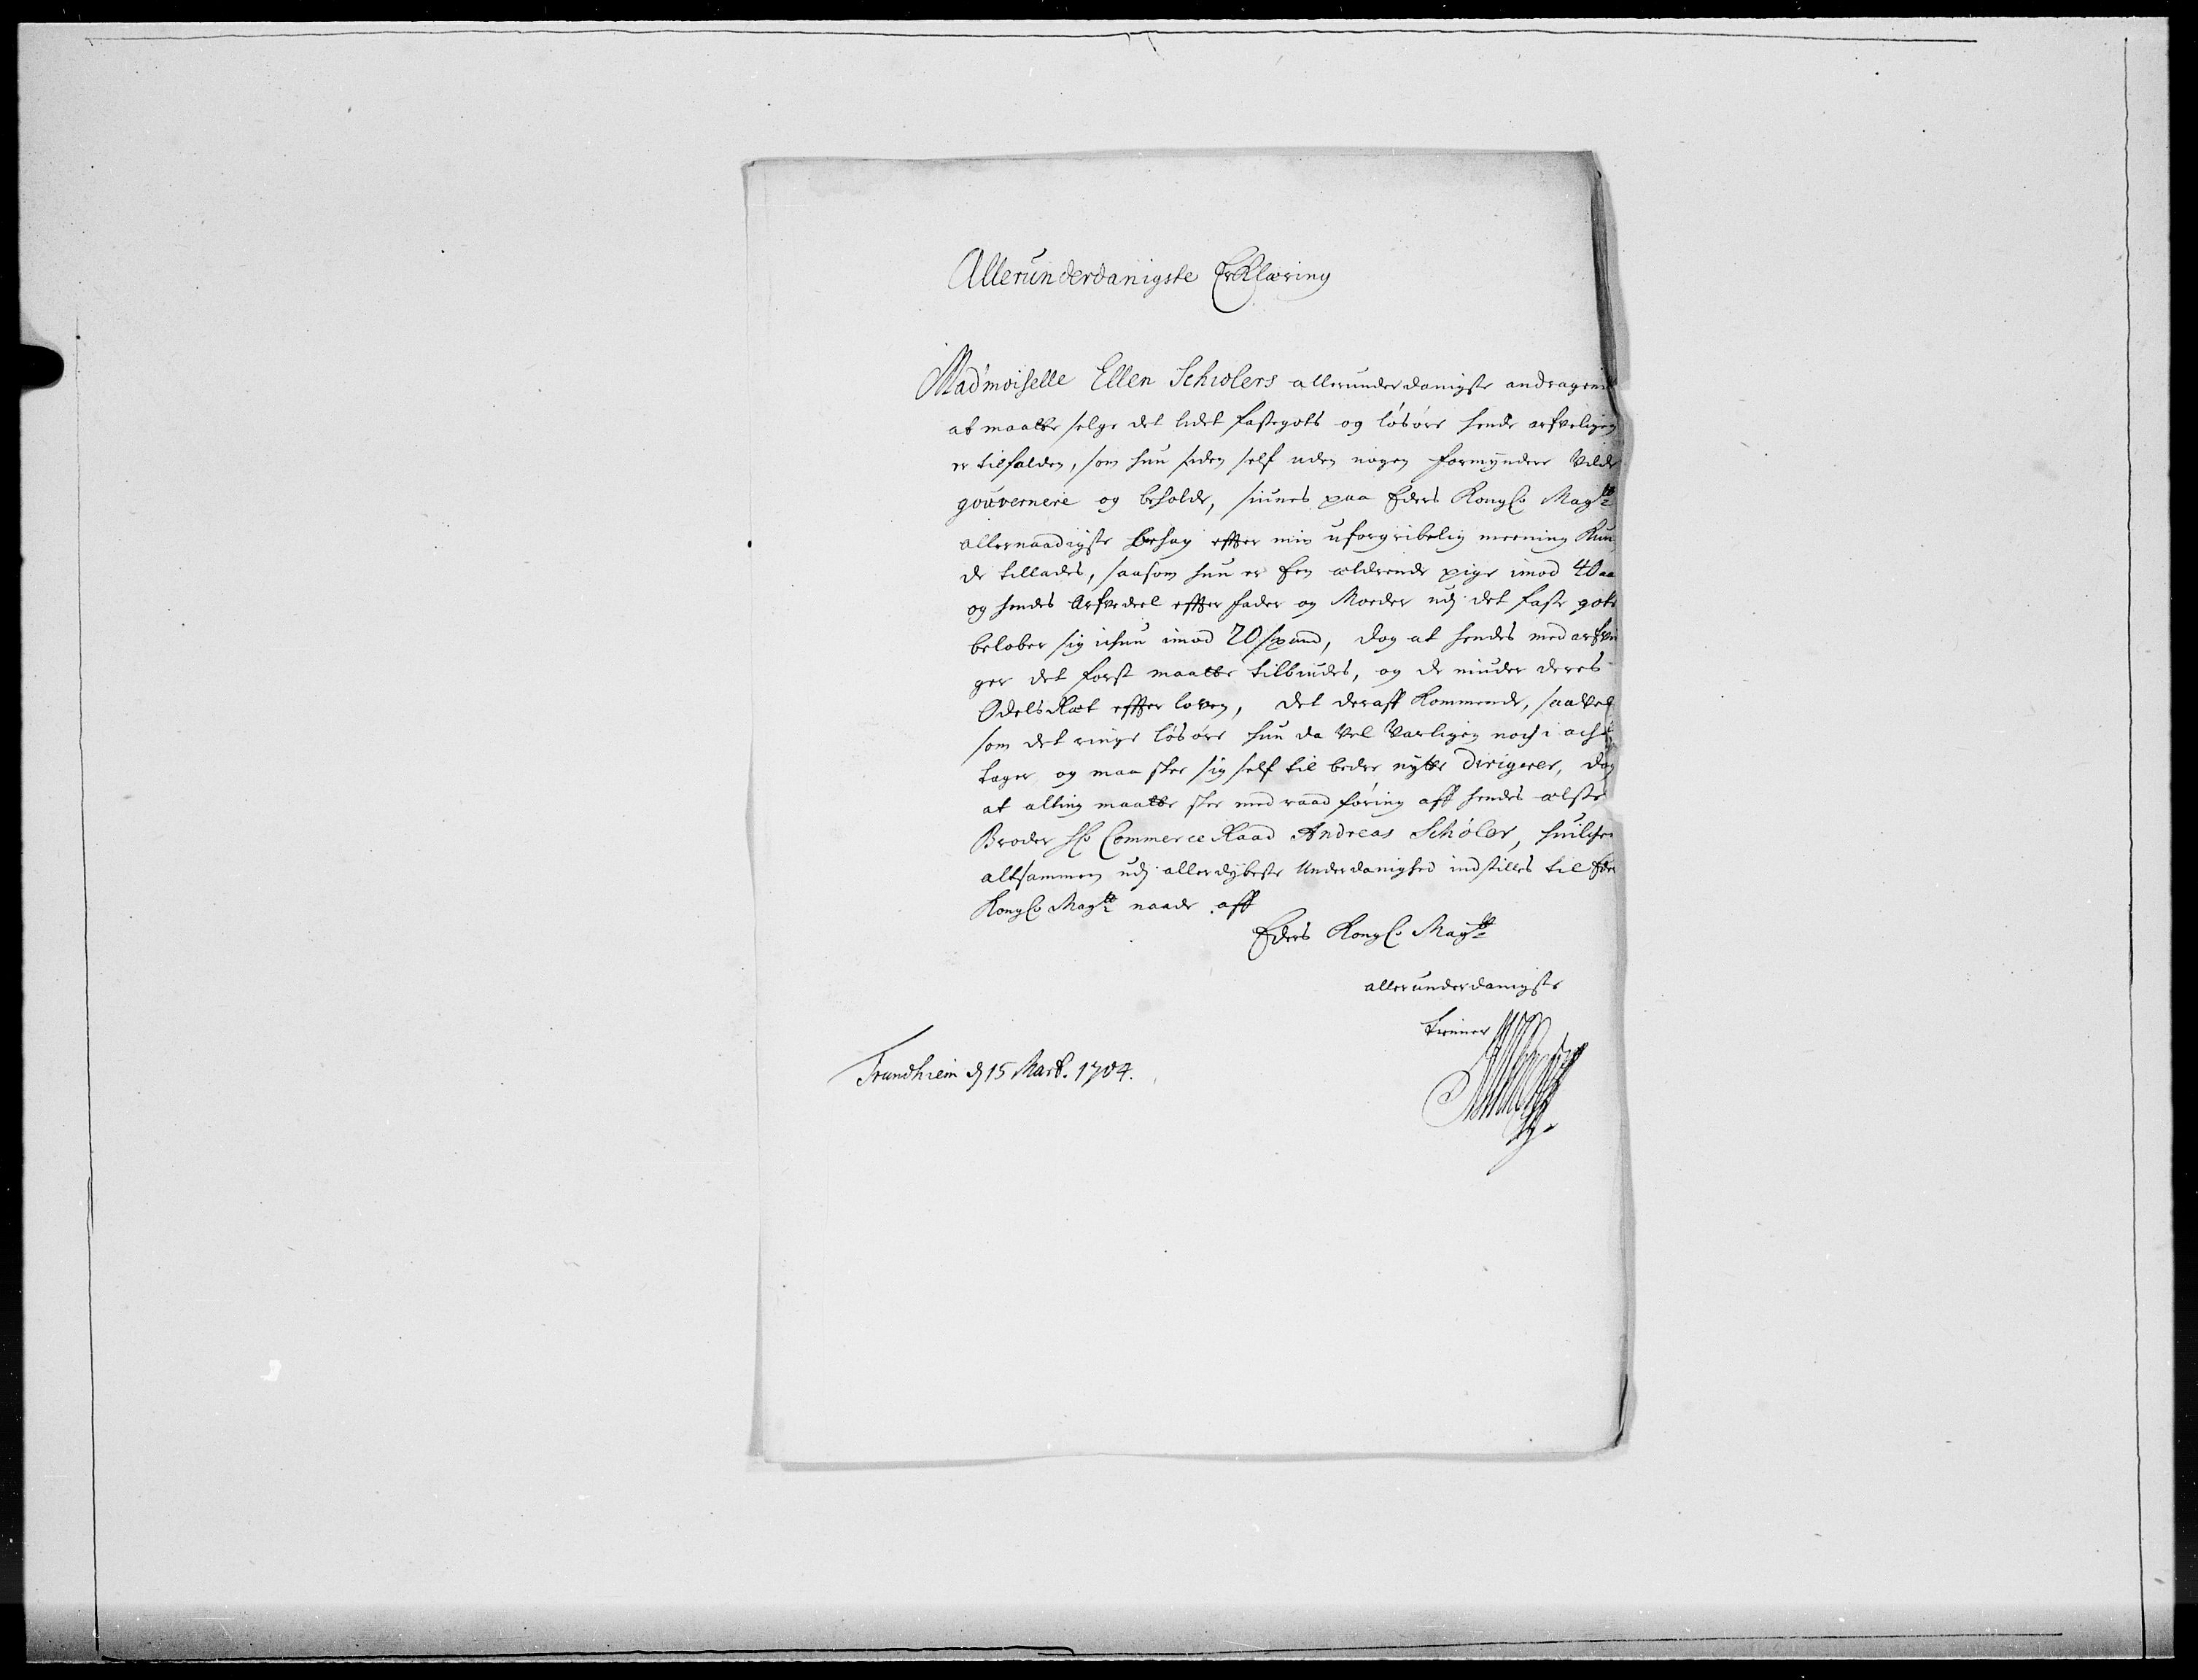 Allerunderdanigste Erklæring
Mad'moiselle Ellen Schiølers allerunderdanigste andragende
at maatte selge det lidet faste gots og løsøre hende arfveligen
er tilfalden, som hun siden self uden nogen formynder vilde
gouvernere og beholde, siunes paa Eders Kongl. Mayts
allernaadigste behag effter min uforgribelig meening Kun¬
de tillades, saasom hun er een aldrende pige imod 40 aa
og hendes Arfvedeel effter fader og Moder udj det faste gots
beløber sig ichun imod 20 spand, dog at hendes med arfvin
ger det først maatte tilbiudes, og de niuder deres
Odels Ræt effter loven, det deraff Kommende, saavel
som det ringe løsøre hun da vel varligen noch i acht
tager og maa skee sig self til bedre nytte dirigerer, dog
at alting maatte skee med raadføring aff hendes ælste
Broder Hr. Commerce Raad Andreas Schøler, huilchet
altsammen udj allerdybeste Underdanighed indstilles til Eders
Kongl. Mayts naade aff
Eders Kongl. Mayts
allerunderdanigste
tienner
Trundhiem d 15 Mart. 1704.